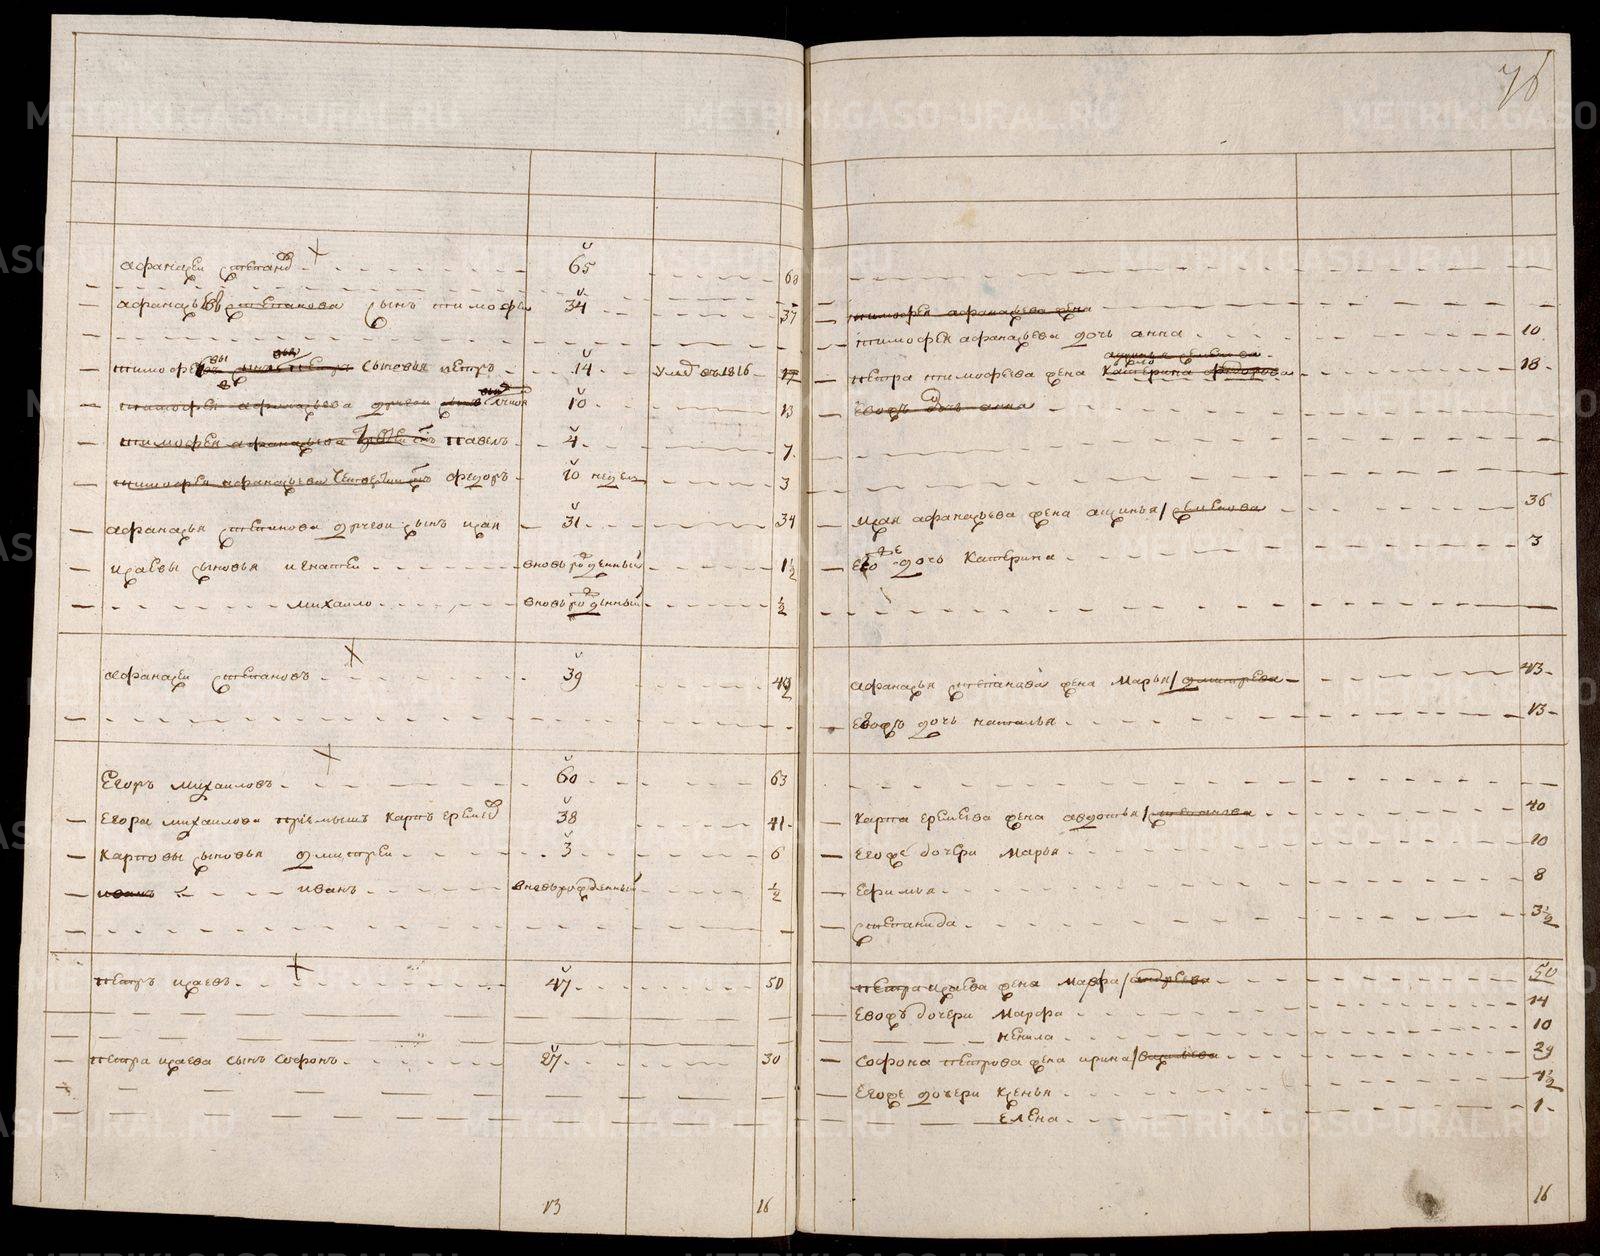 METRIKI.GASO-URAL.RU
Афанасеи Степанов 65 68
Афанасьев Степанова сынъ тимофеи 34 37
тимофеевы сыновья петръ 14 Умъ въ 1816 17
тимофея афанасьева другои 10 13
тимофея афанасьева павелъ 4 7
тимофея афанасьева федоръ 10 недел 3
афанасья степанова другои сынъ исаи 31 34
исаевы сыновья игнатеи вновь рожденныи 1½
михаило вновь рожденныи ½
Афанасеи степановъ 39 42
Егоръ михаиловъ 60 63
Егора михаилова приемышъ карпъ еремеев 38 41
карповы сыновья дмитреи 3 6
иванъ иванъ вновьрожденныи ½
петръ исаевъ 47 50
петра исаева сынъ софонъ 27 30
13 16
тимофея афанасьева жена
тимофея афанасьева дочь анна 10
петра тимофеева жена катерина федорова 18
Евожъ дочь анна
исая афанасьева жена аксинья / семенова 36
Его дочь катерина 3
афанасья степанова жена марья / дмитрева 43
Евожъ дочь наталья 13
карпа еремеева жена авдотья / степанова 40
Егоже дочери марья 10
Ефимья 8
степанида 3½
петра исаева жена марфа / андреева 50
Евожъ дочери марфа 14
ненила 10
софона петрова жена ирина / васильева 29
Егоже дочери ксенья 1½
елена 1
16